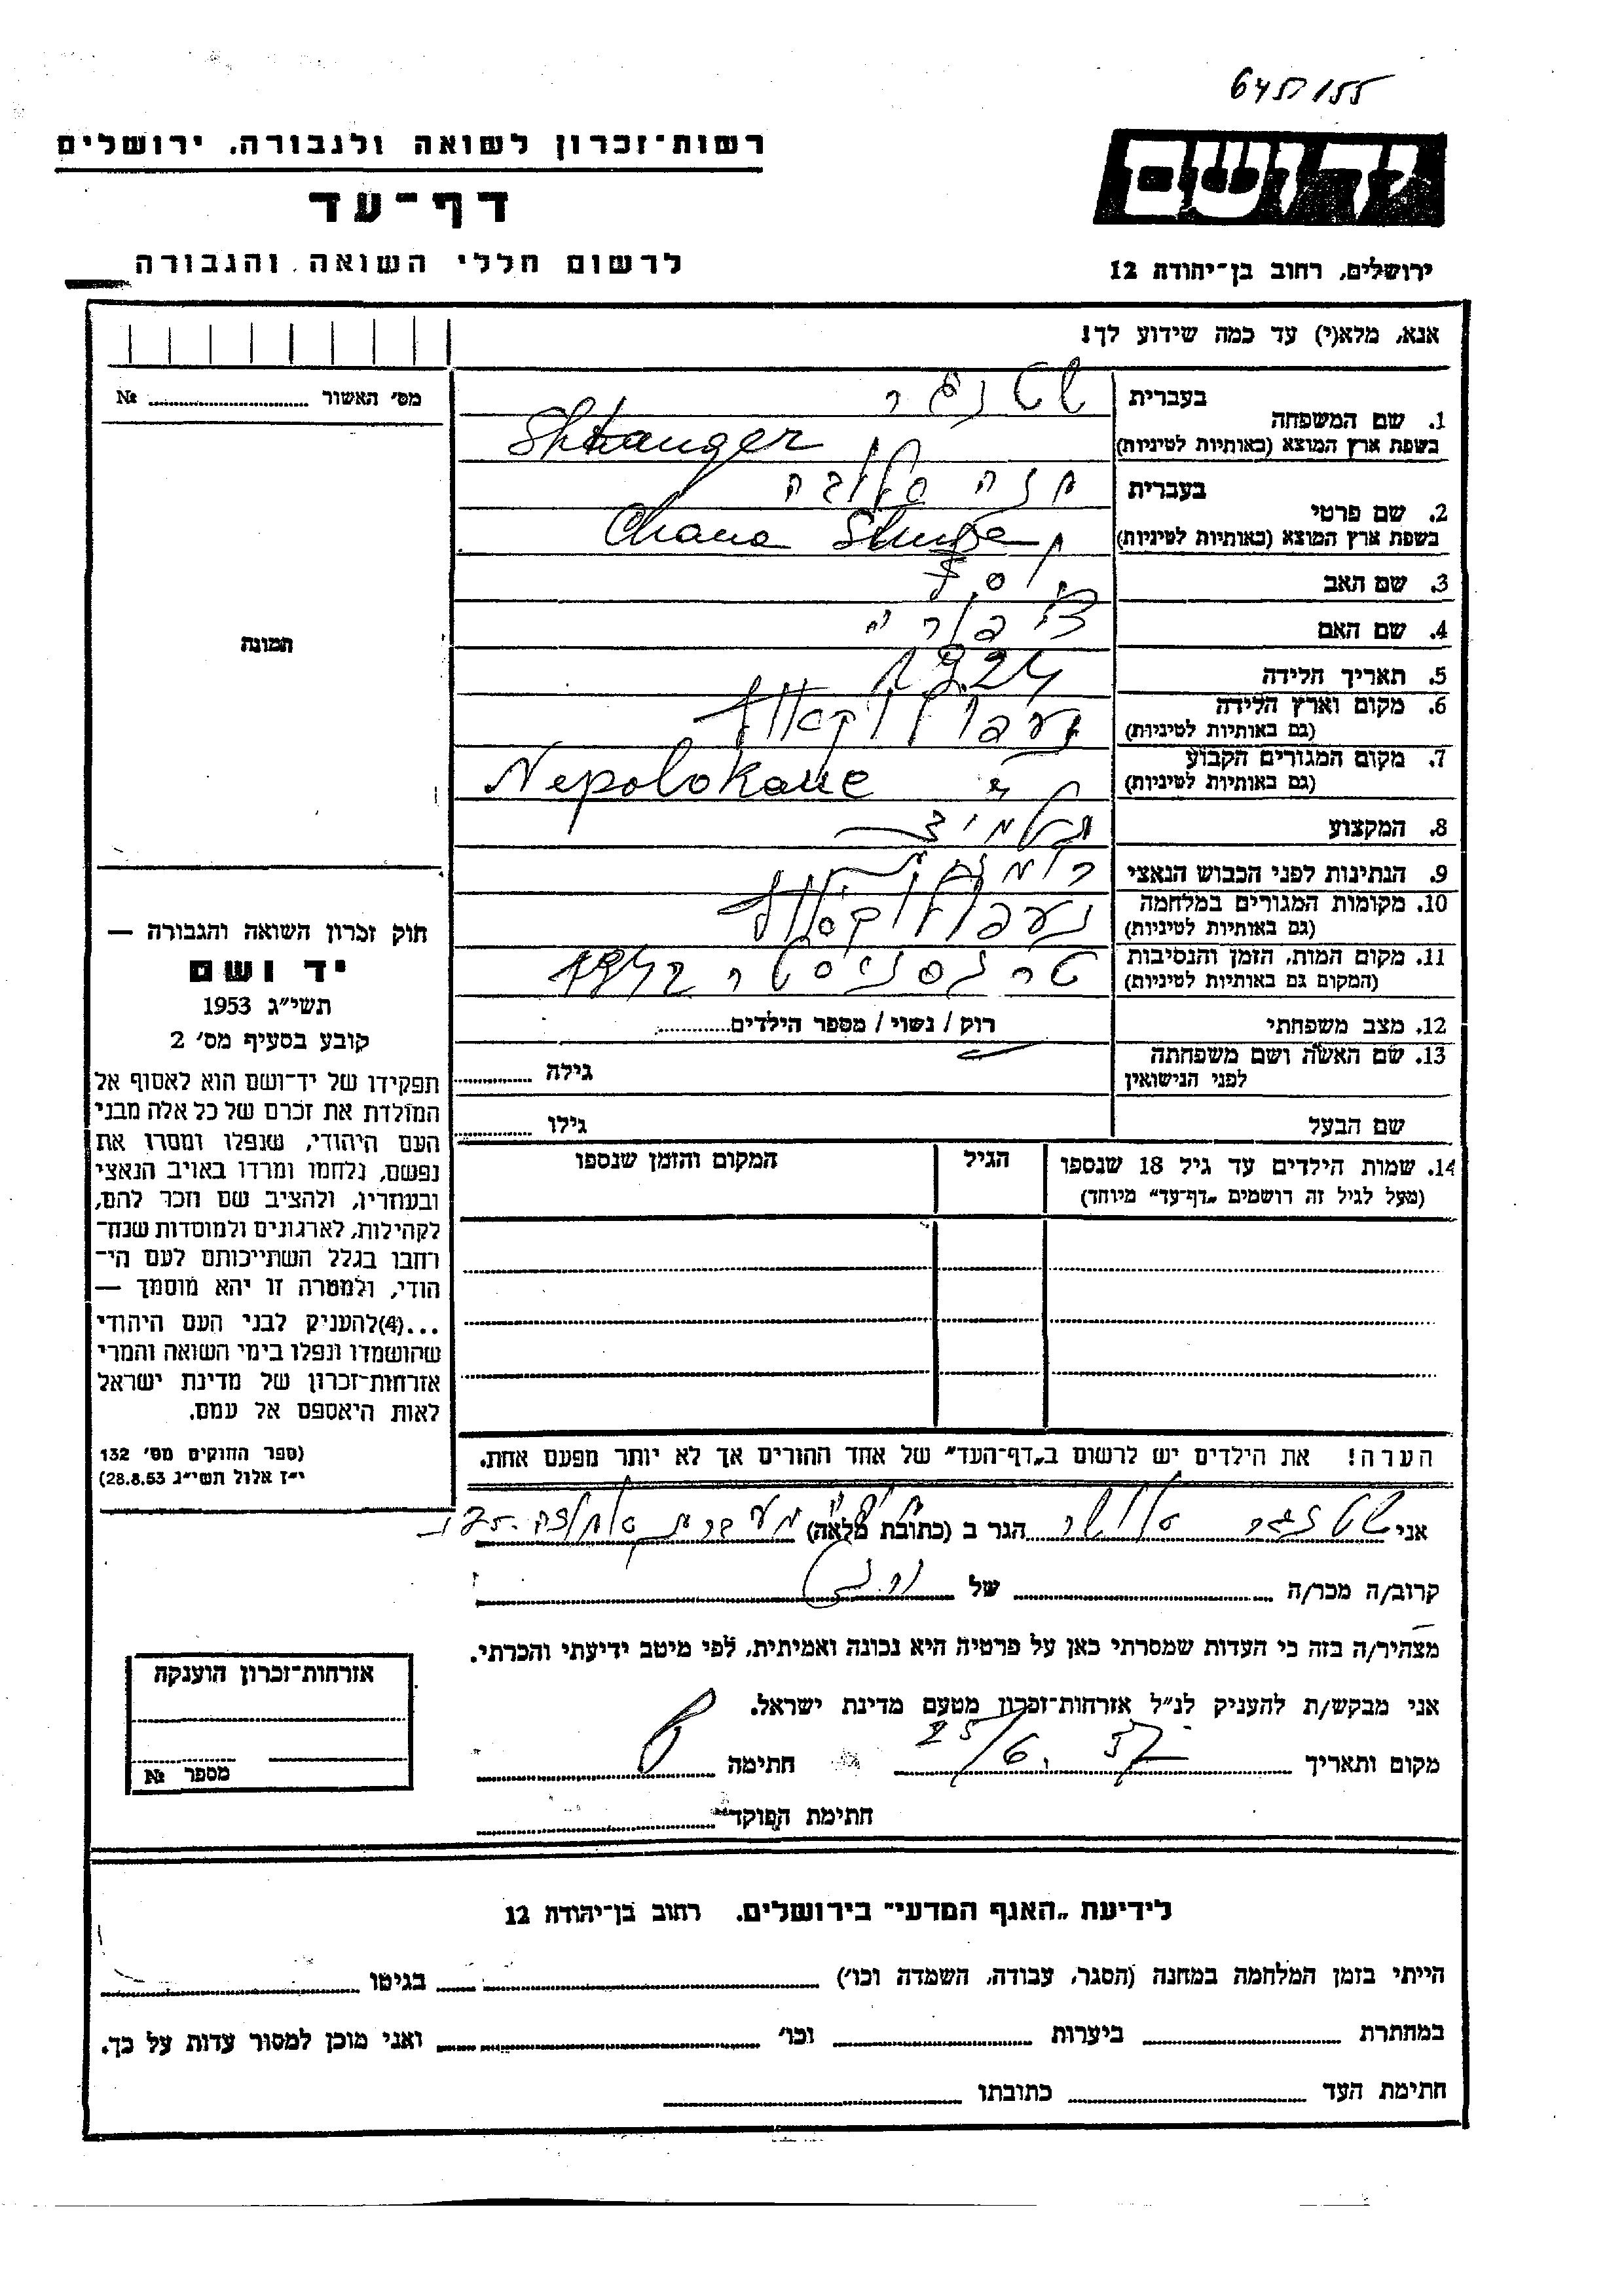 645ס/155
רשות־זכרון לשואה ולגבורה, ירושלים
ידושם
דף־עד
לרשום חללי השואה והגבורה
ירושלים, רחוב בן־יהודה 12
אנא, מלא(י) עד כמה שידוע לך!
מס׳ האשור № 
תמונה
1. שם המשפחה
בעברית שטנגר
בשפת ארץ המוצא (באותיות לטיניות) Shtanger
2. שם פרטי
בעברית חנה
בשפת ארץ המוצא (באותיות לטיניות) Chana
3. שם האב יוסף
4. שם האם ציפורה
5. תאריך הלידה 1924
6. מקום וארץ הלידה
(גם באותיות לטיניות)
7. מקום המגורים הקבוע
(גם באותיות לטיניות) Nepolokauc
8. המקצוע תלמיד
9. הנתינות לפני הכבוש הנאצי
10. מקומות המגורים במלחמה
(גם באותיות לטיניות)
11. מקום המות, הזמן והנסיבות
(המקום גם באותיות לטיניות) טרנסניסטר 1942
12. מצב משפחתי רוק / נשוי / מספר הילדים
13. שם האשה ושם משפחתה
לפני הנישואין גילה
שם הבעל גילו
14. שמות הילדים עד גיל 18 שנספו הגיל המקום והזמן שנספו
(מעל לגיל זה רושמים „דף־עד” מיוחד)
חוק זכרון השואה והגבורה —
יד ושם
תשי״ג 1953
קובע בסעיף מס׳ 2
תפקידו של יד־ושם הוא לאסוף אל
המולדת את זכרם של כל אלה מבני
העם היהודי, שנפלו ומסרו את
נפשם, נלחמו ומרדו באויב הנאצי
ובעוזריו, ולהציב שם וזכר להם,
לקהילות, לארגונים ולמוסדות שנח־
רחבו בגלל השתייכותם לעם הי־
הודי, ולמטרה זו יהא מוסמך —
...(4)להעניק לבני העם היהודי
שהושמדו ונפלו בימי השואה והמרי
אזרחות־זכרון של מדינת ישראל
לאות היאספם אל עמם.
(ספר החוקים מס׳ 132
י״ז אלול תשי״ג 28.8.53)
הערה! את הילדים יש לרשום ב„דף־העד” של אחד ההורים אך לא יותר מפעם אחת.
אני שטנגר הגר ב (כתובת מלאה) מעברת
קרוב/ה מכר/ה של
מצהיר/ה בזה כי העדות שמסרתי כאן על פרטיה היא נכונה ואמיתית, לפי מיטב ידיעתי והכרתי.
אני מבקש/ת להעניק לנ״ל אזרחות־זכרון מטעם מדינת ישראל.
מקום ותאריך 25/6. 57 חתימה
חתימת הפוקד
אזרחות־זכרון הוענקה
מספר №
לידיעת „האגף המדעי” בירושלים, רחוב בן־יהודה 12
הייתי בזמן המלחמה במחנה (הסגר, עבודה, השמדה וכו׳) בגיטו
במחתרת ביערות וכו׳ ואני מוכן למסור עדות על כך.
חתימת העד כתובתו